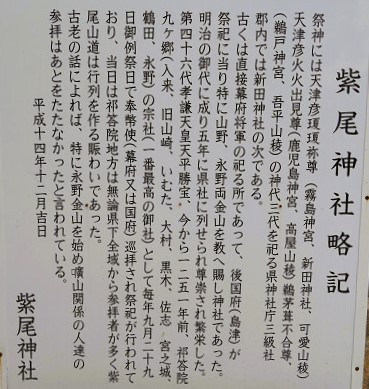 紫尾神社略記
祭神には天津彦瓊瓊杵尊（霧島神宮、新田神社、可愛山稜）
天津彦火火出見尊（鹿児島神宮、高屋山稜）鵜茅葺不合尊、
（鵜戸神宮、吾平山稜）の神代三代を祀る県神社庁三級社
郡内では新田神社の次である。
古くは直接幕府将軍の祀る所であって、後国府（島津）が
祭祀に当り特に山野、永野両金山を教へ賜し神社であった。
明治の御代に成り五年に県社に列せられ尊崇され繁栄した。
第四十六代孝謙天皇天平勝宝、今から一二五一年前、祁答院
九ヶ郷（入来、旧山崎、いむた、大村、黒木、佐志、宮之城、
鶴田、永野）の宗社（一番最高の御社）として毎年九月二十九
日御例祭日で奉幣使（幕府又は国府）巡拝され祭祀が行われて
おり、当日は祁答院地方は無論県下全域から参拝者が多く紫
尾山道は行列を作る賑わいであった。
古老の話によれば、特に永野金山を始め嚝山関係の人達の
参拝はあとをたたなかったと言われている。
平成十四年十二月吉日
紫尾神社